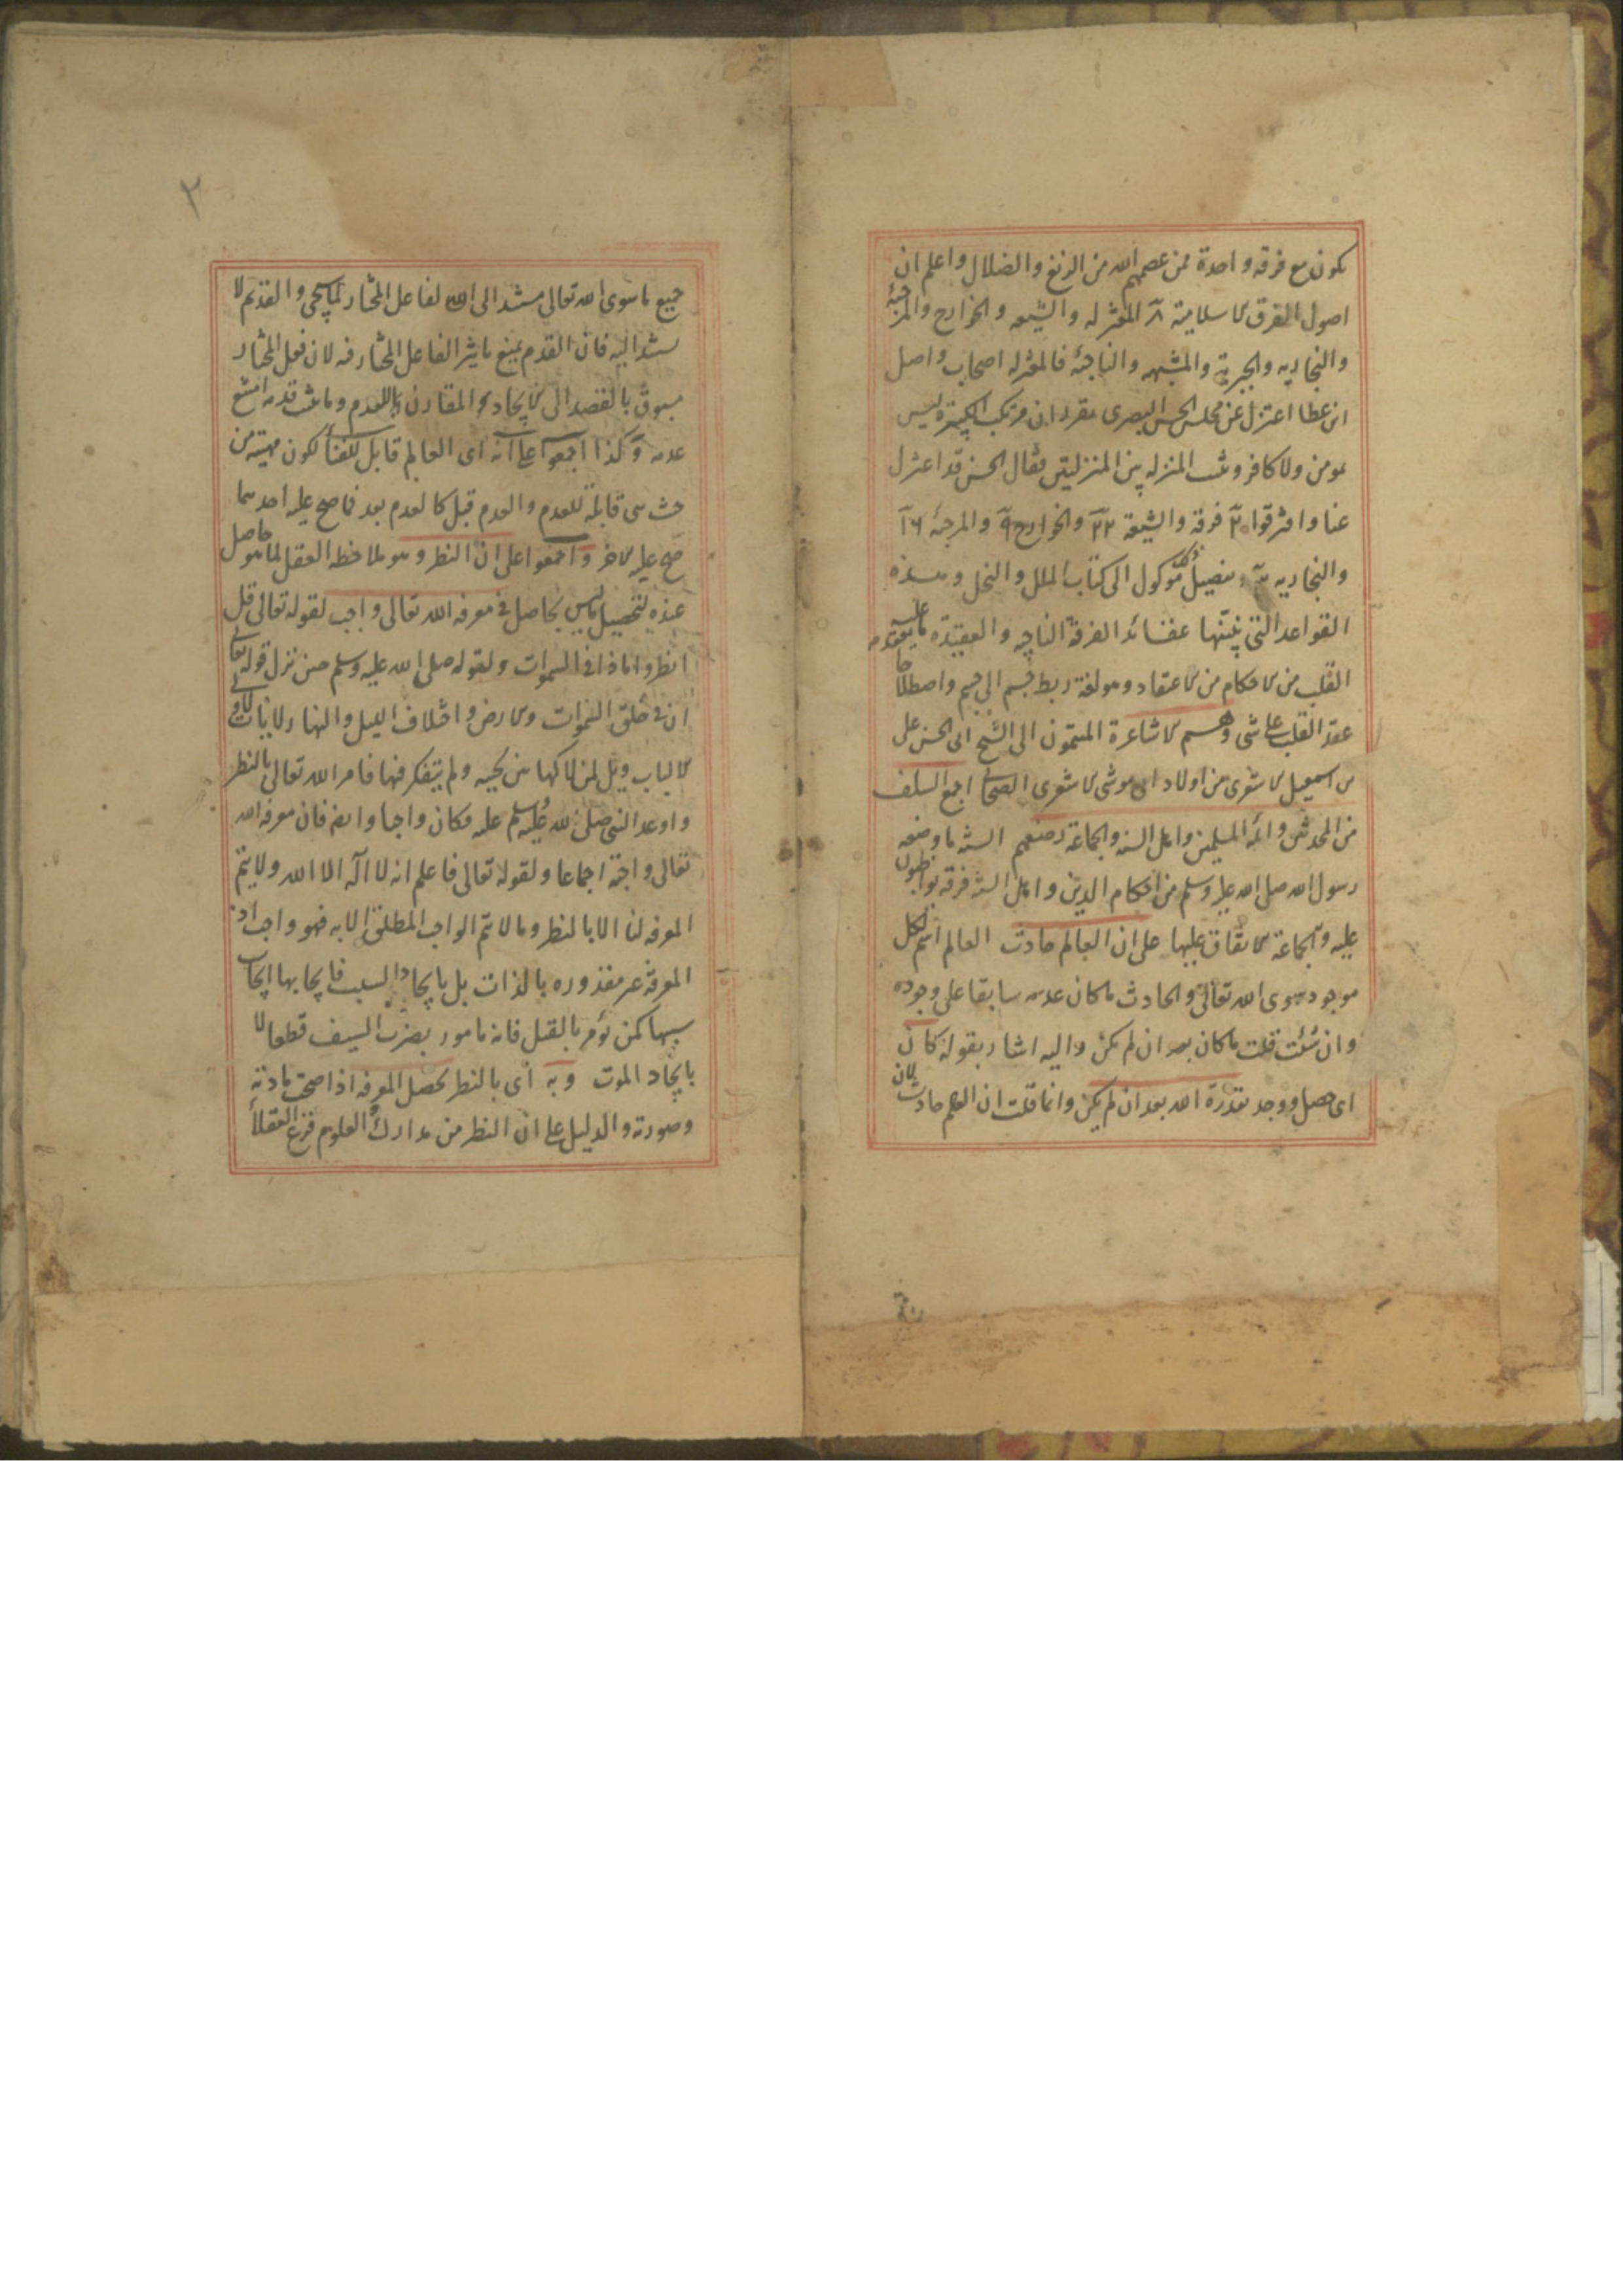 يكون مع فرقه واحدة ممن عصمهم الله من الزيغ والضلال واعلم ان
اصول الفرق الاسلامية ٨ المعتزله والشيعه والخوارج والمرجئة
والنجاريه والجبرية والمشبهه والناجية فالمعتزله اصحاب واصل
ابن عطا اعتزل عن مجلس الحسن البصرى يقرر ان مرتكب الكبيرة ليس
بمومن ولا كافر ويثبت المنزله بين المنزليتن فقال الحسن قد اعتزل
عنا وافترقوا ٢٠ فرقة والشيعة ٢٢ والخوارج والمرجئة
والنجاريه تفصيل كل موكول الى كتاب الملل والنحل وهذه
القواعد التى بينتها عقائد الفرقة الناجيه والعقيدة ما يعقد عليه
القلب من الاحكام من الاعتقاد وهو لغة ربط جسم الى جسم واصطلاحا
عقد القلب على شى وهم الاشاعرة المنتمون الى الشيخ ابى الحسن على
بن اسمعيل الاشعرى من اولاد ابى موسى الاشعرى الصحابى اجمع السلف
من المحدثين وائمة المسلمين واهل السنه والجماعة رضعهم السنة ما وضعه
رسول الله صلى الله عليه وسلم من احكام الدين واهل السنة فرقه يواظبون
عليه والجماعة الاتفاق عليها على ان العالم حادث العالم اسم لكل
موجود سوى الله تعالى والحادث ما كان عدمه سابقا على وجوده
وان شئت قلت ما كان بعد ان لم يكن واليه اشار بقوله كان
اى حصل ووجد بقدرة الله بعد ان لم يكن وانما قلت ان العالم حادث لان
٣
جميع ما سوى الله تعالى مستند الى الله الفاعل المختار لما سيجى والقديم لا
يستند اليه فان القدم يمنع تاثير الفاعل المختار فيه لان فعل المختار
مسبوق بالقصد الى الايجاد المقارن للعدم وما ثبت قدمه امتنع
عدمه وكذا اجمعوا على انه اى العالم قابل للفناء لكون مهيته من
حيث هى قابلة للعدم والعدم قبل كالعدم بعد فما صح عليه احدهما
صح عليه الاخر واجمعوا على ان النظر وهو ملاحظه العقل لما هو حاصل
عنده لتحصيل ما ليس بحاصل فى معرفه الله تعالى واجب لقوله تعالى قل
انظروا ماذا فى السموات ولقوله صلى الله عليه وسلم حين نزل قوله تعالى
ان فى خلق السموات والارض واختلاف الليل والنهار لايات لاولى
الالباب ويل لمن لاكها بين لحييه ولم يتفكر فيها فامر الله تعالى بالنظر
واوعد النبى صلى الله عليه وسلم عليه فكان واجبا وايضا فان معرفه الله
تعالى واجبة اجماعا ولقوله تعالى فاعلم انه لا اله الا الله ولا يتم
المعرفه لنا الا بالنظر وما لا يتم الواجب المطلق الا به فهو واجب اذ
المعرفة غير مقدوره بالذات بل بايجاد السبب فايجابها ايجاب
سببها كمن يؤمر بالقتل فانه مامور بضرب السيف قطعا لا
بايجاد الموت وبه اى بالنظر تحصل المعرفه اذا صحت مادته
وصورته والدليل على ان النظر من مدارك العلوم فزع العقلا